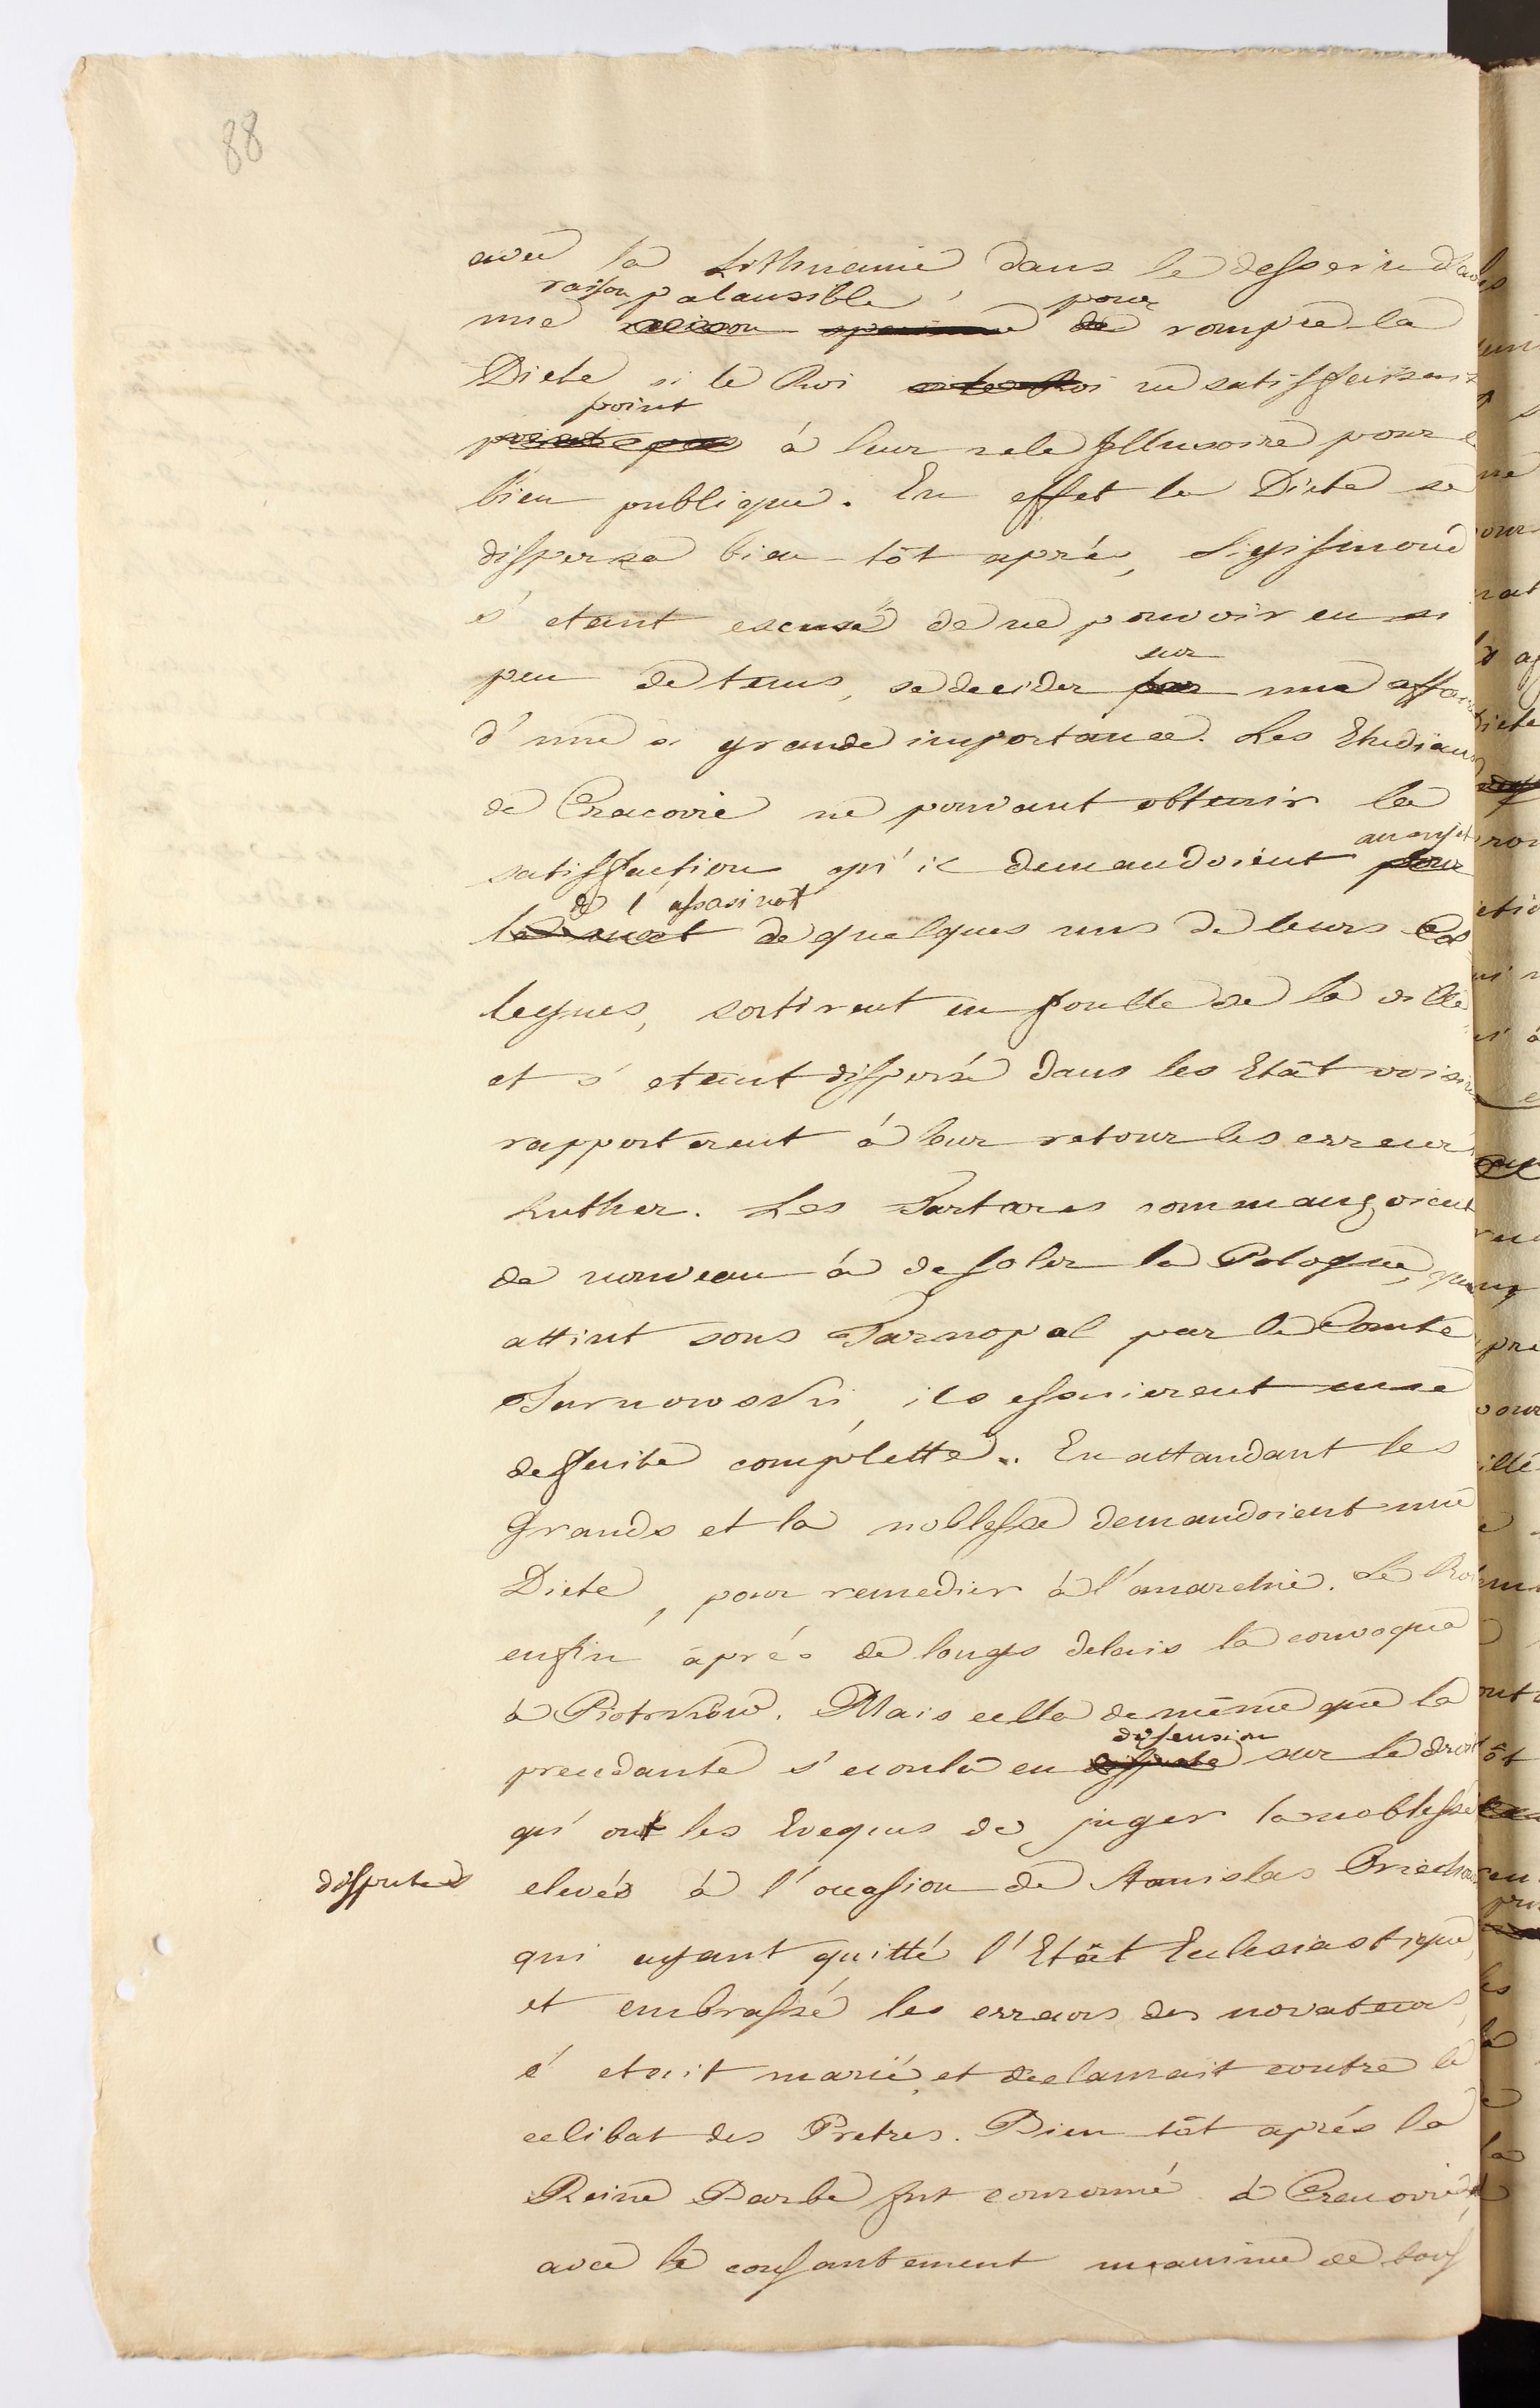 88
avec la Lithuanie dans le dessein d'av
raison palausible pour
une raison de rompre la
Diete si le Roi si le Roi ne satisfaisant
point
point pas à leur zele Illusoire pour l
bien publique. En effet la Diete se
dispersa bien tôt aprés, Sigismond
s' etant excusé de ne pouvoir en si
peu de tems, se decider sur
par une affaire
d' une si grande importance. Les Etudians
de Cracovie ne pouvant obtenir la
satisfaction qu' il demandoient au sujet
pour
de l' assasinat
la mort de quelques uns de leurs Col
legues, sortirent en foulle de la ville
et s' etant dispersé dans les Etât voisins
rapporterent à leur retour les erreur
Luther. Les Tartares commançoient
de nouveau à desoler la Pologne,
attint sous Tarnopal par le Comte
Tarnowski, ils essuierent une
deffaite complette. En attandant les
Grands et la noblesse demandoient une
Diete, pour remedier à l'anarchie. Le Roi
enfin après de longs delais la convoqua
à Piotrkow. Mais celle de même que la
dissension
prendante s' ecoula en dispute sur le droit
qu' ont les Eveques de juger la noblesse
disputes elevés à l' occasion de Stanislas Orziechow
qui ayant quitté l' Etât Eclesiastique,
et embrassé les erreurs des novateurs,
s' etoit marié, et declamait contre le
celibat des Pretres. Bien tôt après la
Reine Barbe fut couronné à Cracovie,
avec le consantement unanime de tous